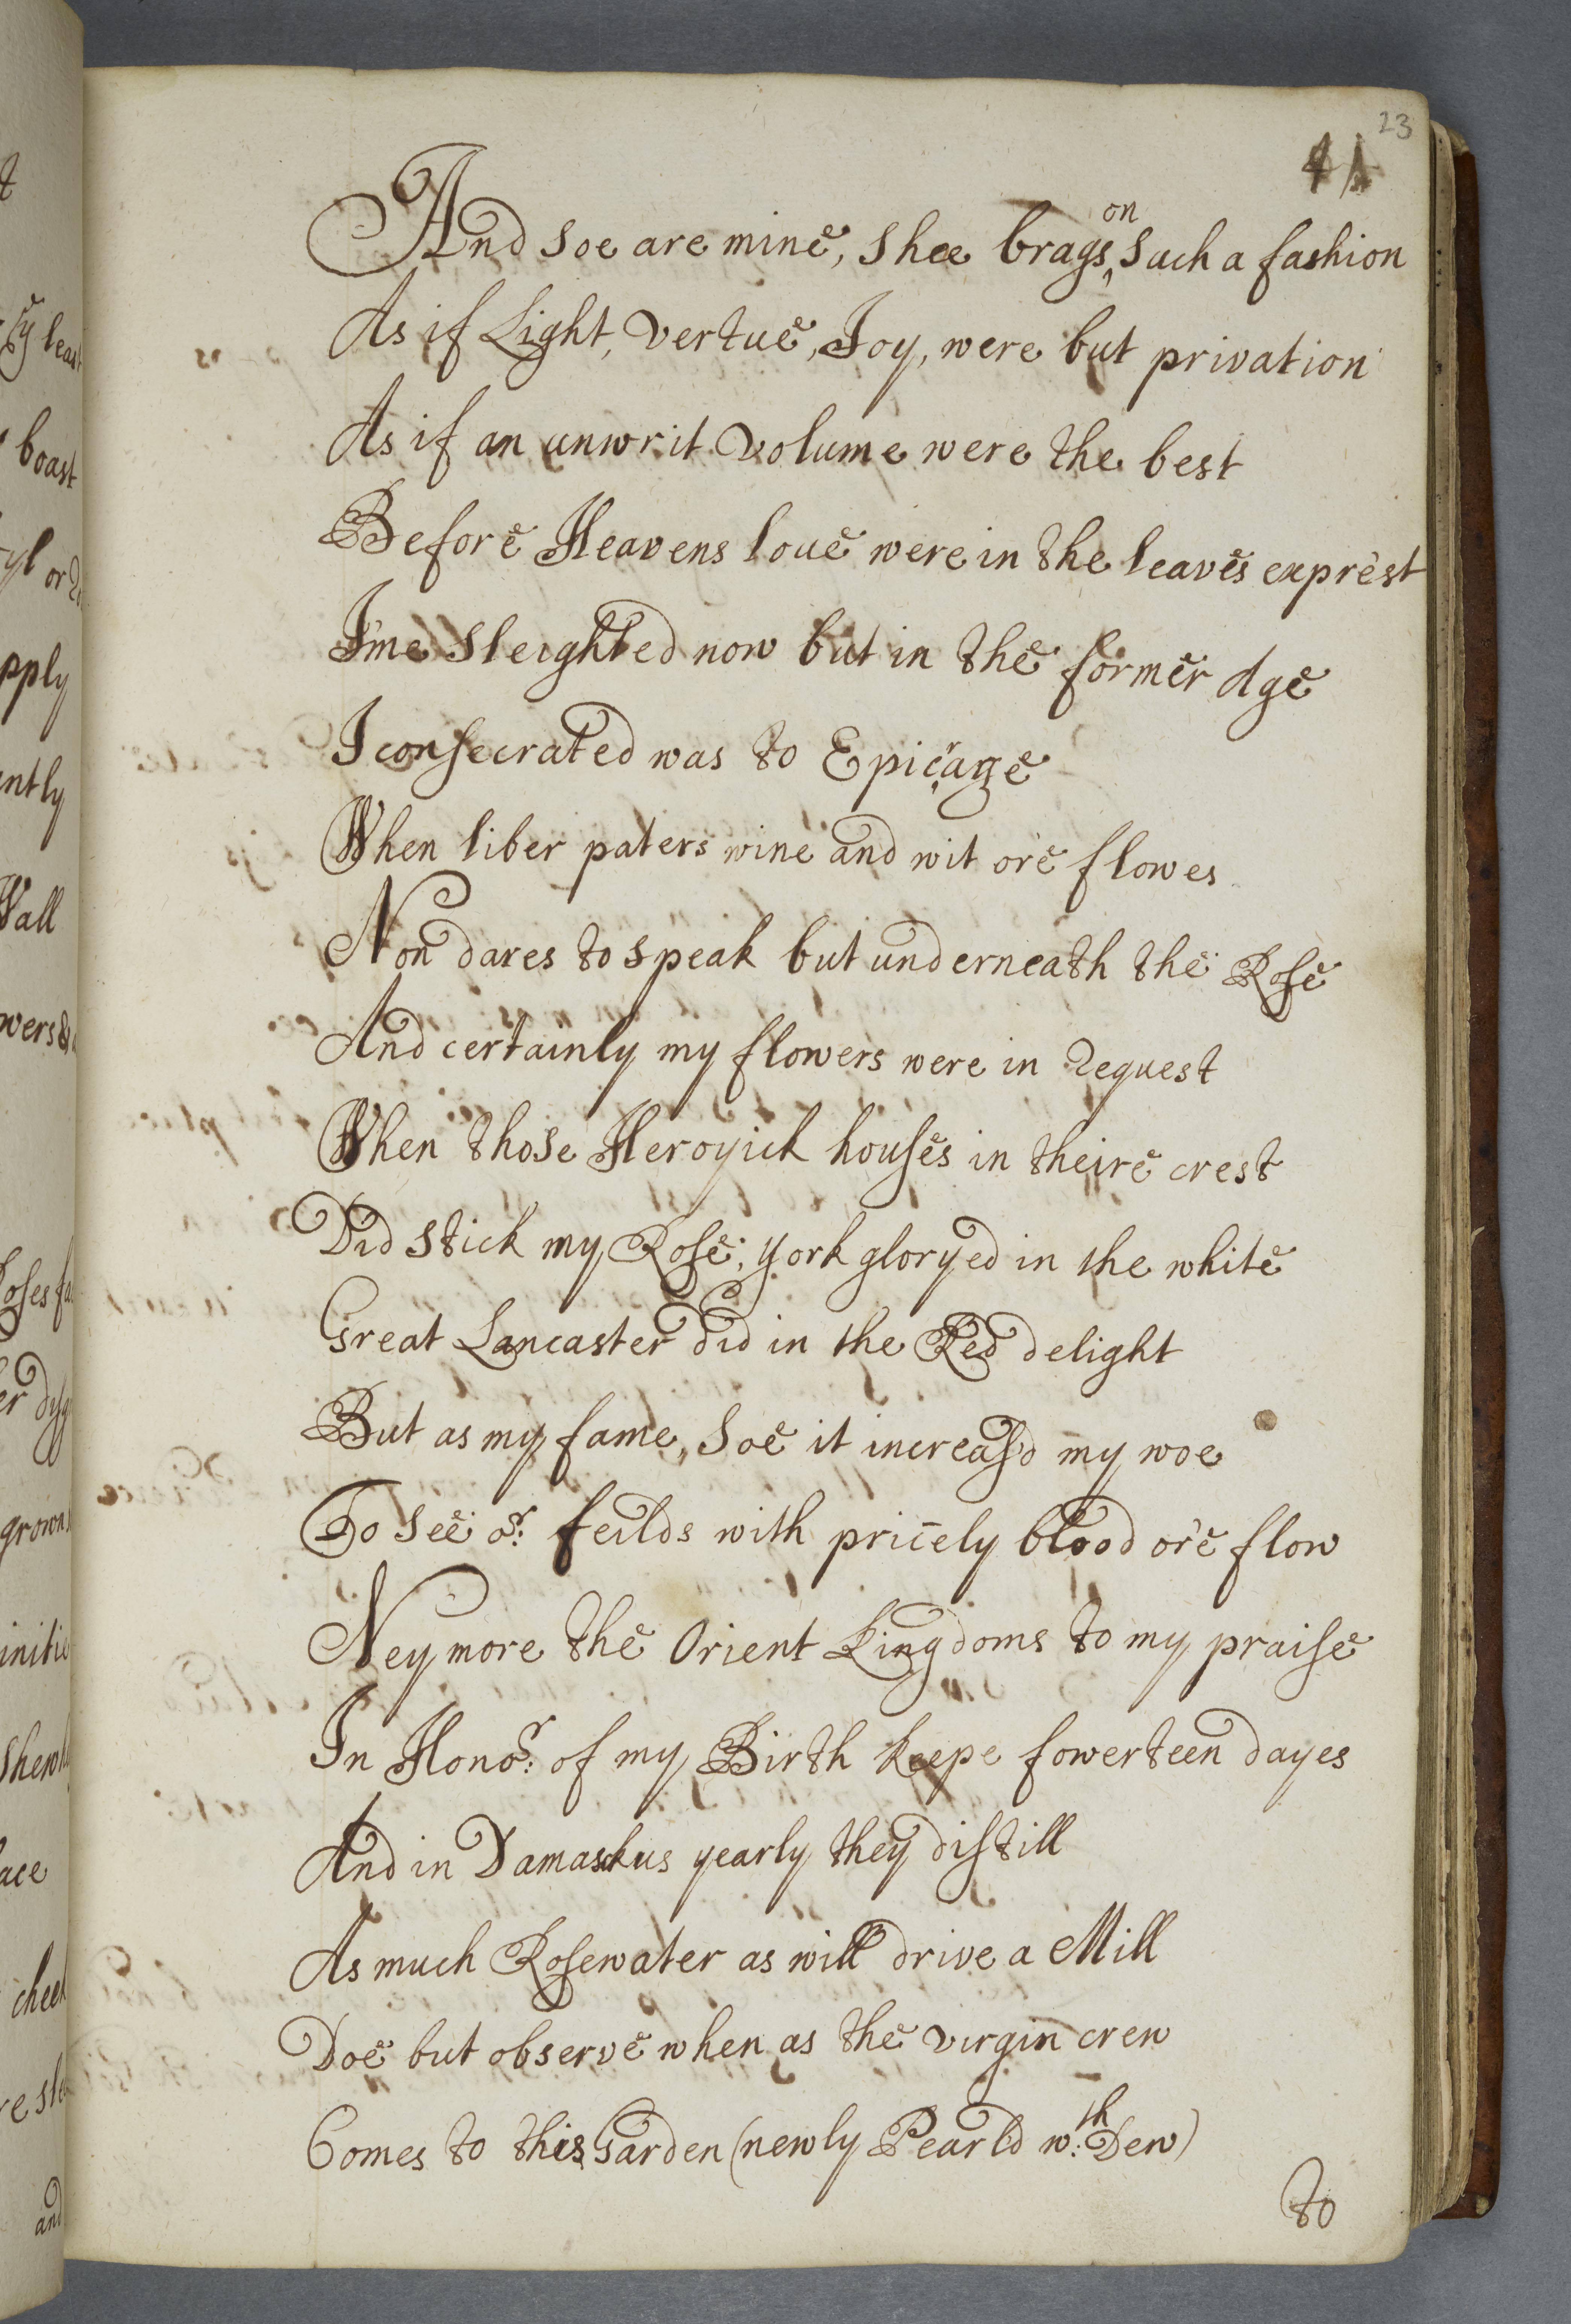 23
41
And soe are mine, shee brags on such a fashion
As if Light, vertue, Joy, were but privation
As if an unwrit volume were the best
Before Heavens loue were in the leaves exprest
I'me sleighted now but in the former Age
I consecrated was to
When liber paters wine and wit o're flowes
Non dares to speak but underneath the Rose
And certainly my flowers were in request
When those Heroyick houses in theire crest
Did stick my Rose; york gloryed in the white
Great Lancaster did in the Red delight
But as my fame, soe it increas'd my woe
To see or: feilds with pricely blood o're flow
Ney more the Orient Kingdoms to my praise
In Honor: of my Birth keepe fowerteen dayes
And in Damaskus yearly they distill
As much Rosewater as will drive a Mill
Doe but observe when as the virgin crew
Comes to this Garden (newly Pearld w:th Dew)
to